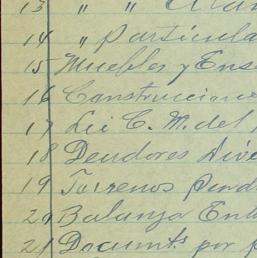 13 " "
14 " Particula
15 Muebles y Ense
16 Construccione
17 Lic C. M. del
18 Deudores Dive
19 Terrenos
20 Balanza Ent
21 Documts por p